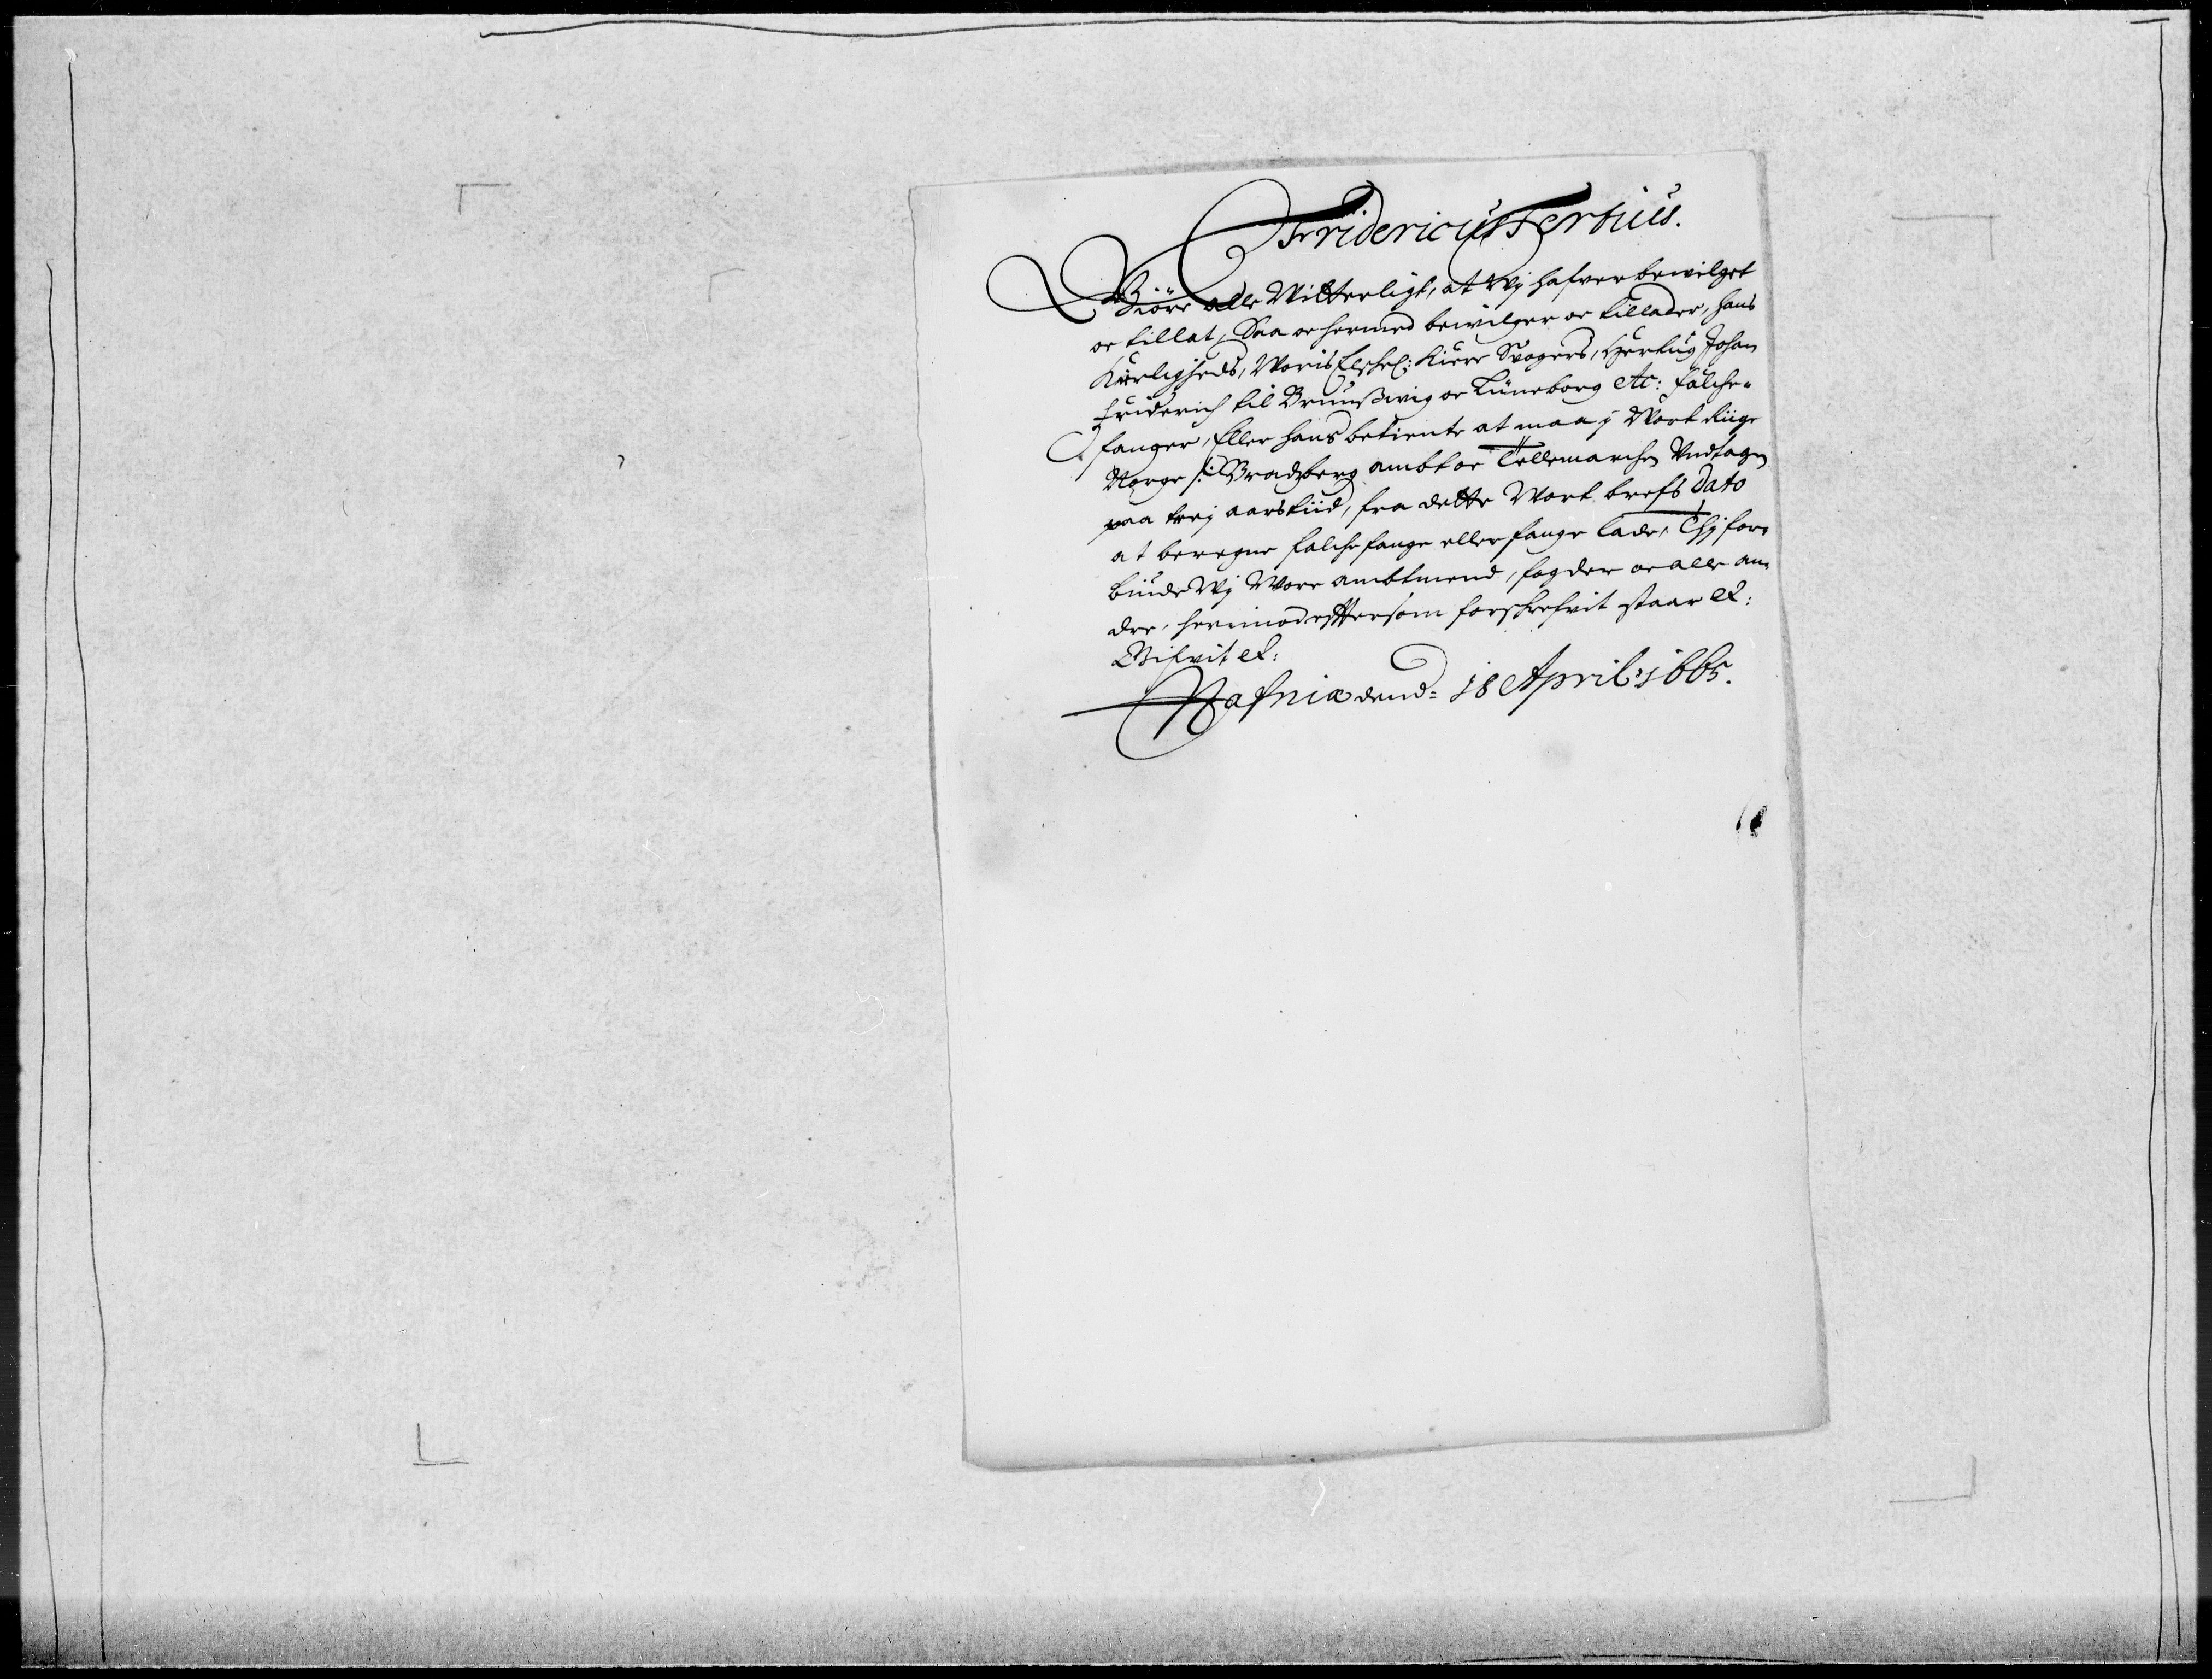 Fridericus Tertius.
Giöre alle Witterligt, at Wij hafver bewilget
oc tillat, Saa oc hermed bewilger oc tillader, hans
Kierligheds, Woris Elschel: Kiere Svogers, Hertug Johan
Friderich til Brunßwig oc Lüneborg etc: falche-
fanger, Eller hans betiente at maa j Wort Riige
Norge /: Bradsberg ambt oc Tellemarchen Undtagen
paa trej aars tiid, fra dette Wort brefs Dato
at beregne falche fange eller fange lade, Thj for-
biude Wij Wore ambtmend, fogder oc alle an-
dre, herimod eftersom forschrefvit staar etc:
Gifvit etc:
Hafniæ dend: 18 April: 1665.